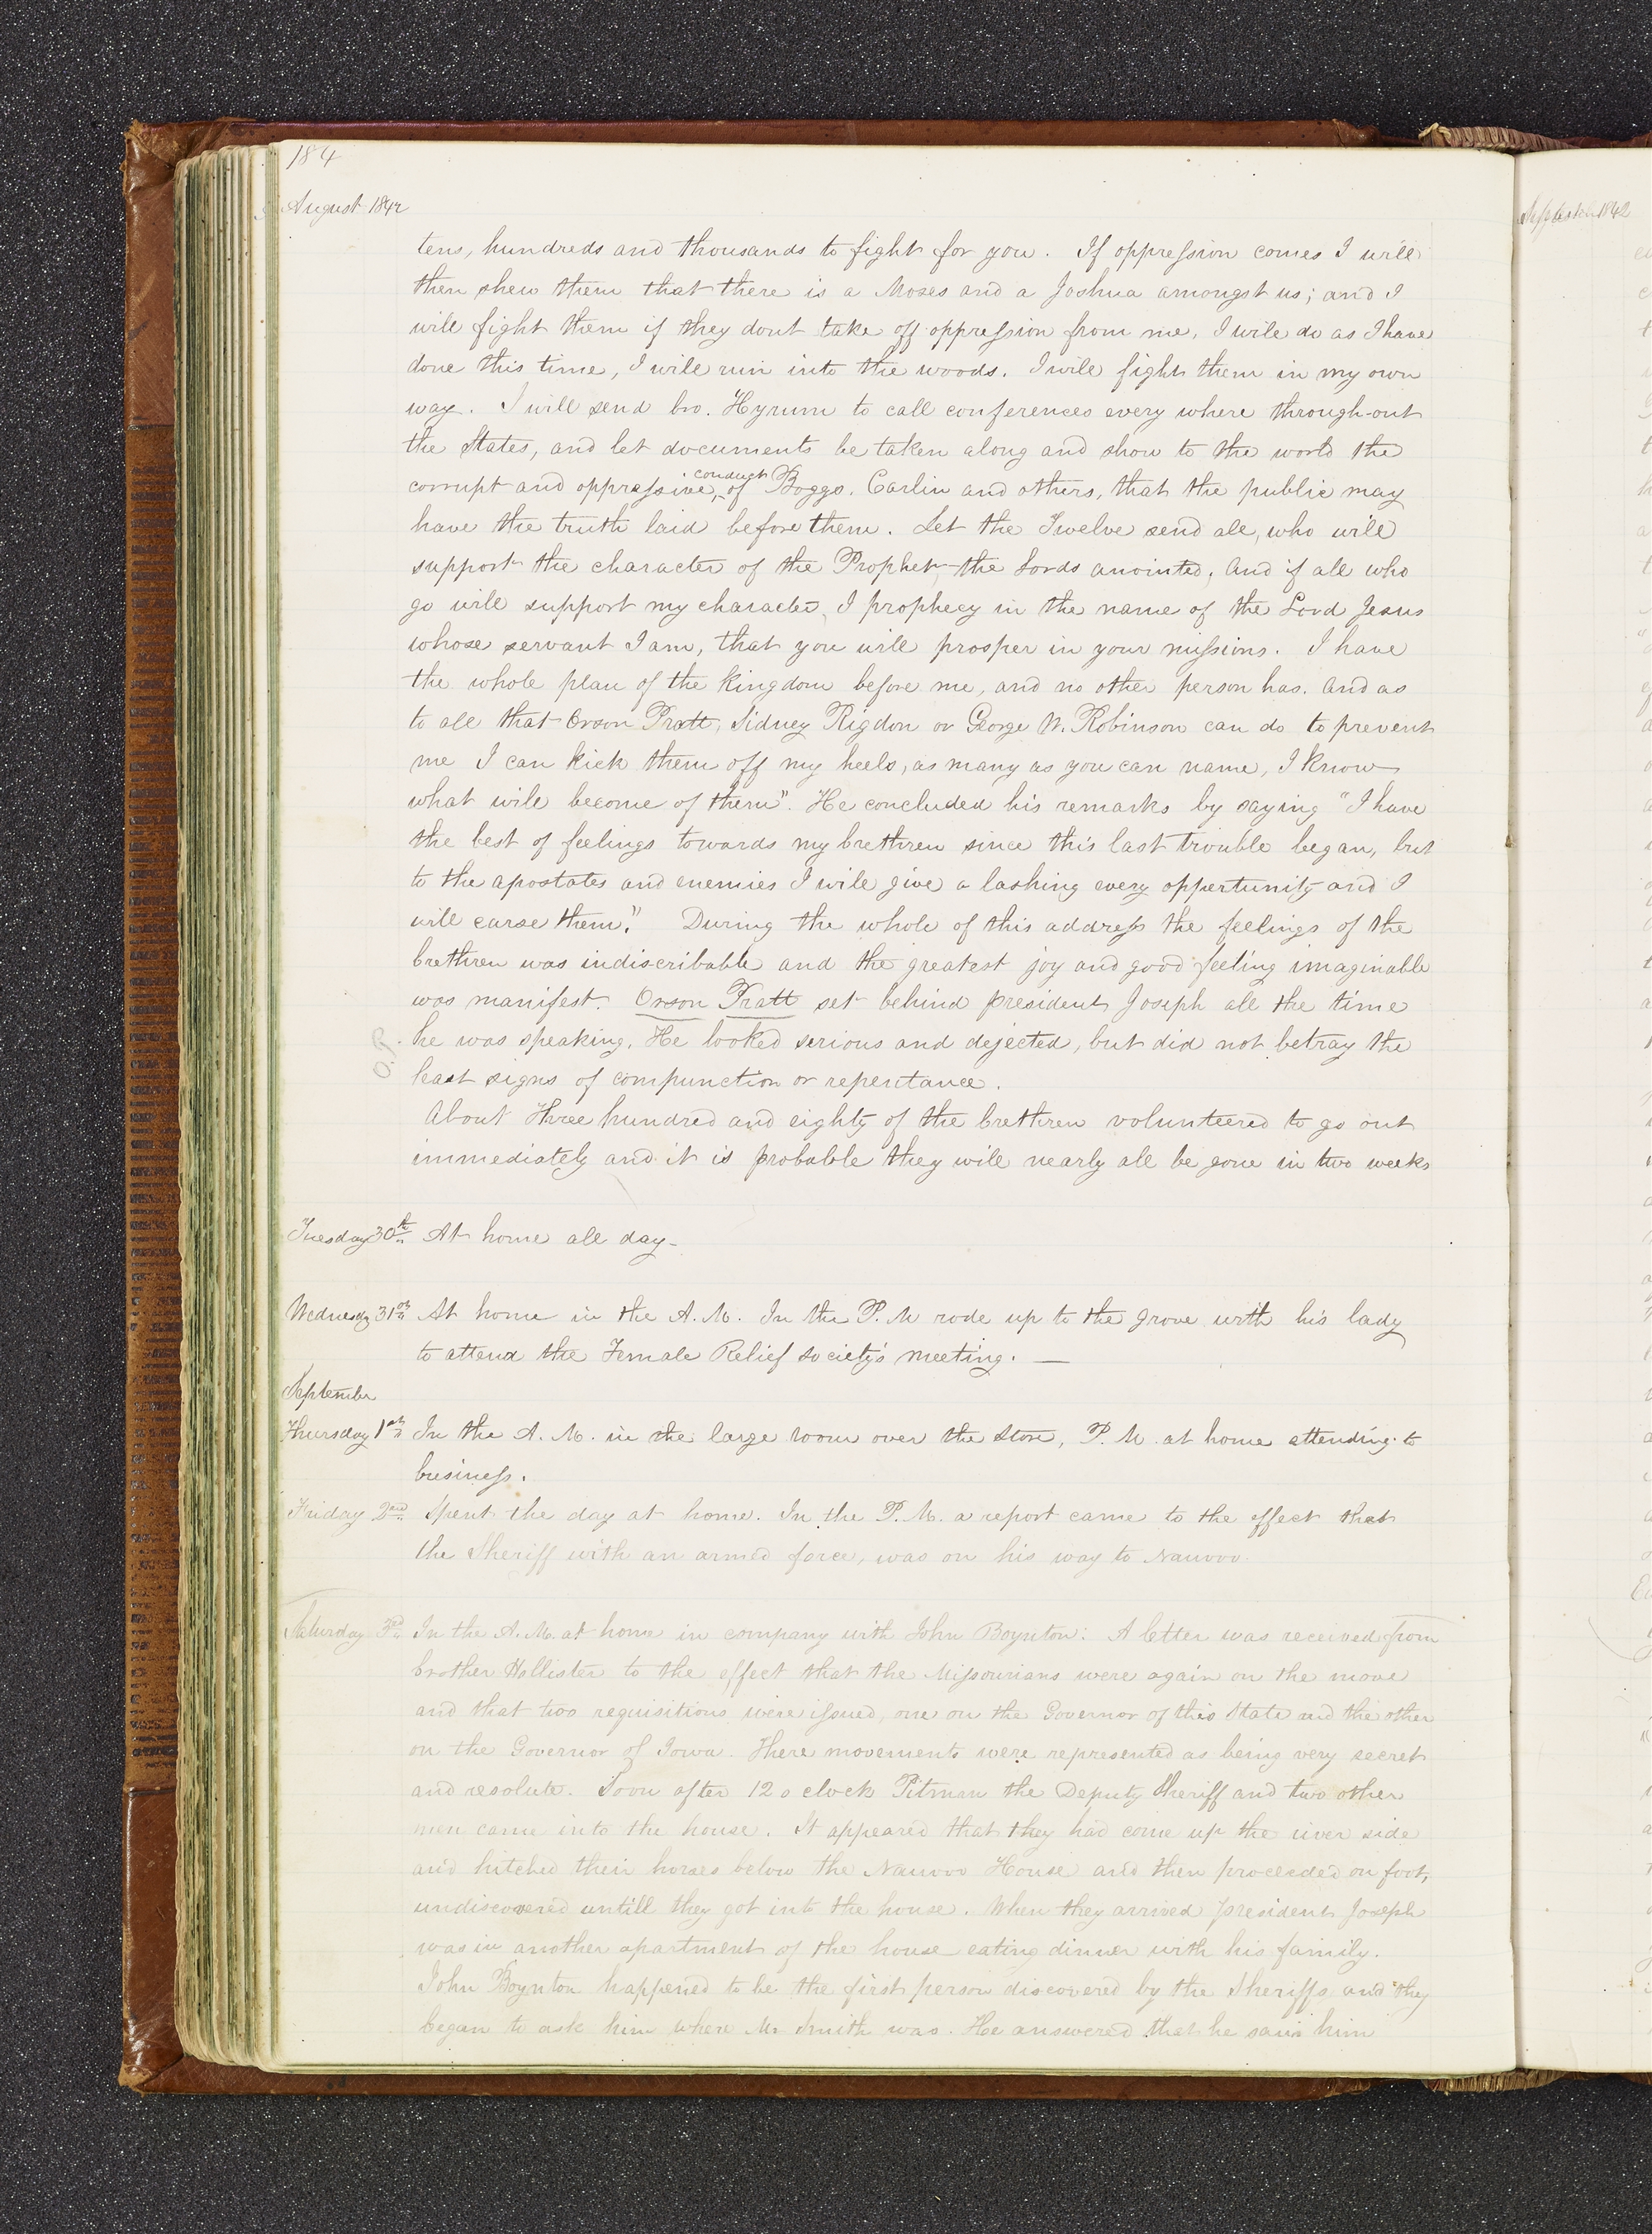 184
August 1842
tens, hundreds and thousands to fight for you. If oppression comes I will
then shew them that there is a Moses and a Joshua amongst us; and I
will fight them if they dont take off oppression from me. I will do as I have
done this time, I will run into the woods. I will fight them in my own
way. I will send bro. Hyrum to call conferences every where through-out
the States, and let documents be taken along and show to the world the
corrupt and oppressive conduct of Boggs. Carlin and others, that the public may
have the truth laid before them. Let the Twelve send all, who will
support the character of the Prophet—the Lords anointed. And if all who
go will support my character, I prophecy in the name of the Lord Jesus
whose servant I am, that you will prosper in your missions. I have
the whole plan of the kingdom before me, and no other person has. And as
to all that Orson Pratt, Sidney Rigdon or George W. Robinson can do to prevent
me I can kick them off my heels, as many as you can name, I know
what will become of them". He concluded his remarks by saying "I have
the best of feelings towards my brethren since this last trouble began, but
to the apostates and enemies I will give a lashing every oppertunity and I
will curse them." During the whole of this address the feelings of the
brethren was indiscribable and the greatest joy and good feeling imaginable
was manifest. Orson Pratt set behind president Joseph all the time
O.P. he was speaking. He looked serious and dejected, but did not betray the
least signs of compunction or repentance.
About Three hundred and eighty of the brethren volunteered to go out
immediately and it is probable they will nearly all be gone in two weeks
Tuesday 30th At home all day—
Wednesday 31st At home in the A.M. In the P.M rode up to the grove with his lady
to attend the Female Relief society's meeting. —
September
Thursday 1st In the A.M. in the large room over the Store, P.M. at home attending to
business.
Friday 2nd Spent the day at home. In the P.M. a report came to the effect that
the Sheriff with an armed force, was on his way to Nauvoo.
Saturday 3rd In the A.M. at home in company with John Boynton: A letter was received from
brother Hollister to the effect that the Missourians were again on the move
and that two requisitions were issued, one on the Governor of this State and the other
on the Governor of Iowa. There movements were represented as being very secret
and resolute. Soon after 12 o clock Pitman the Deputy Sheriff and two other
men came into the house. It appeared that they had come up the river side
and hitched their horses below the Nauvoo House and then proceeded on foot,
undiscovered untill they got into the house. When they arrived president Joseph
was in another apartment of the house eating dinner with his family.
John Boynton happened to be the first person discovered by the Sheriffs and they
began to ask him where Mr Smith was. He answered that he saw him
September 1842